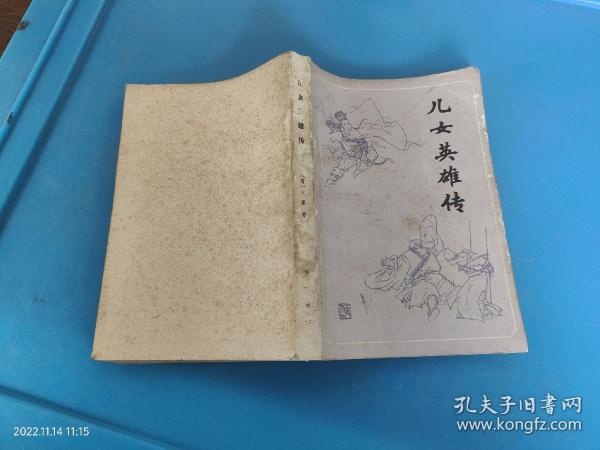 儿女英雄传
女 雄传
著
2022.11.14 11:15
孔夫子旧书网
www.kongfz.com